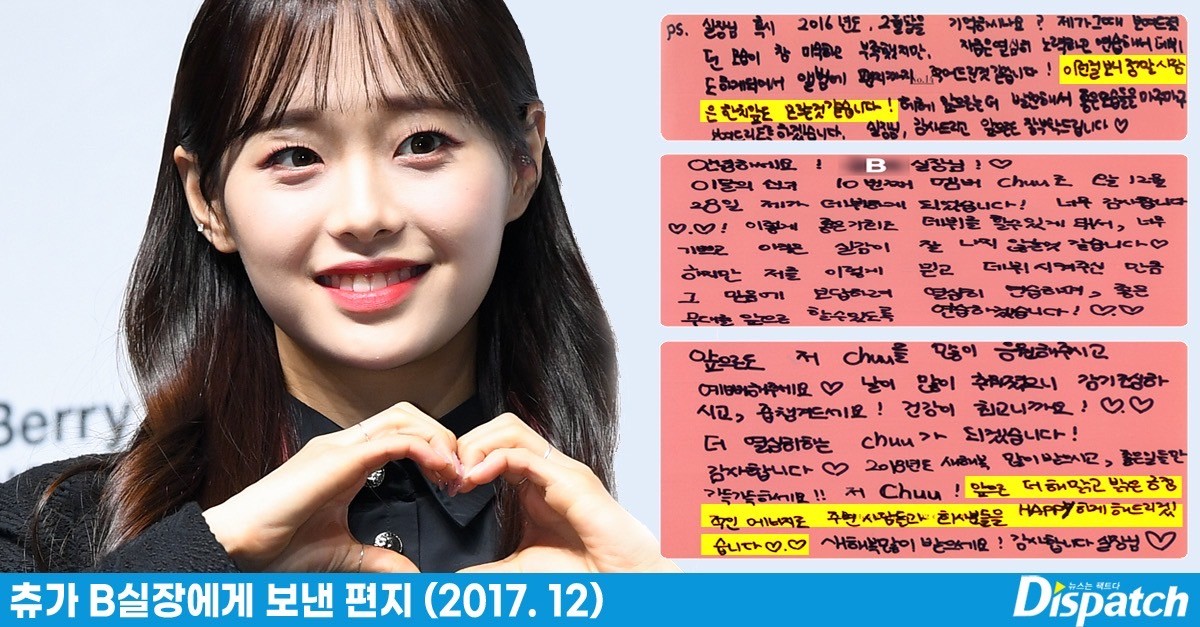 ps. 실장님 혹시 2016년도, 그믐달을 기억하시나요? 제가 그때 보여드렸
던 모습이 참 미숙하고 부족했지만, 지금은 열심히 노력하고 연습해서 데뷔
도 하게되어서 앨범에 편지까지 적어드린것같습니다! 이런걸 보니 정말 사람
은 한치앞도 모르는것같습니다! 헤헤 앞으로는 더 발전해서 좋은모습들을 마구마구
보여드리도록 하겠습니다. 실장님, 감사드리고 앞으로도 잘부탁드립니다♡
안녕하세요! B 실장님!♡
이달의 소녀 10번째 멤버 Chuu로 12월
28일 제가 데뷔하게 되었습니다! 너무 감사합니다
♡.♡! 이렇게 좋은기회로 데뷔를 할수있게 돼서, 너무
기쁘고 아직은 실감이 잘 나지 않는것 같습니다♡
하지만 저를 이렇게 믿고 데뷔시켜주신 만큼
그 믿음에 보답하려 열심히 연습하며, 좋은
무대를 앞으로 할수있도록 연습하겠습니다! ♡.♡
앞으로도 저 Chuu를 많이 응원해주시고
예뻐해주세요♡ 날이 많이 추워졌으니 감기조심하
시고, 몸챙겨드세요! 건강이 최고니까요! ♡.♡
더 열심히하는 Chuu가 되겠습니다!
감사합니다♡ 2018년도 새해복 많이받으시고, 좋은일들만
가득가득하세요!! 저 Chuu! 앞으로 더 해맑고 밝은 긍정
적인 에너지로 주변 사람들과 회사분들을 HAPPY하게 해드리겠
습니다♡.♡ 새해복많이 받으세요! 감사합니다 실장님♡
Berry
츄가 B실장에게 보낸 편지 (2017. 12)
뉴스는 팩트다
Dispatch